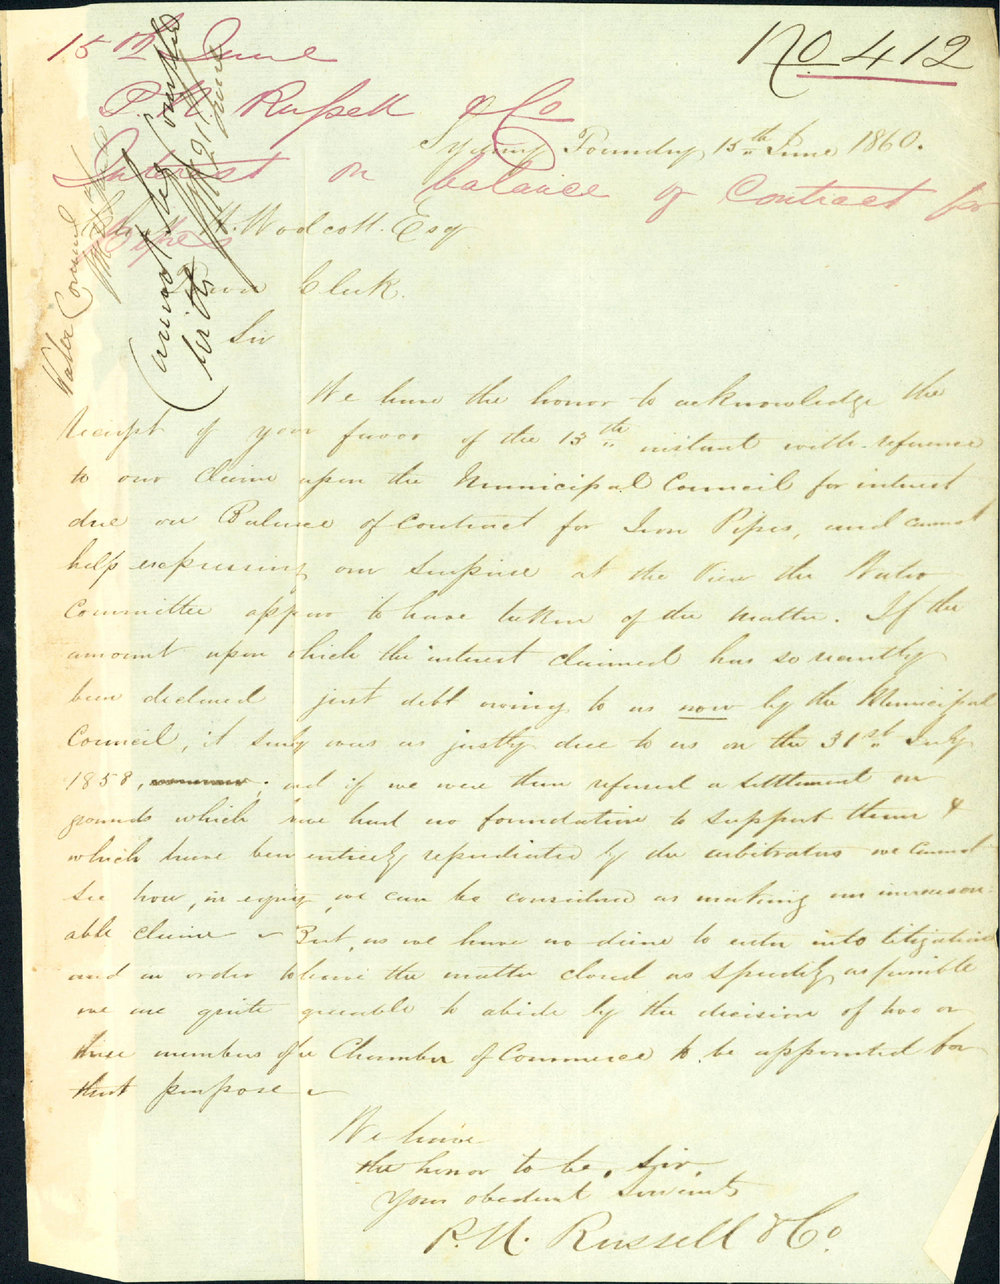 No 412
15th June
P. N. Russell & Co
Interest on balance of Contract for
Pipes
Cannot be complied
with
June
Water Committee
Sydney Foundry 15th June 1860.
H. Wodcott. Esq
Town Clerk.
Sir
We have the honor to acknowledge the
receipt of your favor of the 13th instant with reference
to our Claim upon the Municipal Council for interest
due on Balance of Contract for Iron Pipes, and cannot
help expressing our surprise at the View the Water
Committee appear to have taken of the matter. If the
amount upon which the interest claimed has so recently
been declared just debt owing to us now by the Municipal
Council, it surely was as justly due to us on the 31st July
1858, and if we were then refused a settlement on
grounds which have had no foundation to support them &
which have been entirely repudiated by the arbitrators we cannot
see how, in equity we can be considered as making an unreason-
able claim - But, as we have no desire to enter into litigation
and in order to have the matter closed as speedily as possible
we are quite agreeable to abide by the decision of two or
three members of the Chamber of Commerce to be appointed for
that purpose -
We have
the honor to be, Sir,
Your obedient Servants
P. N. Russell & Co.